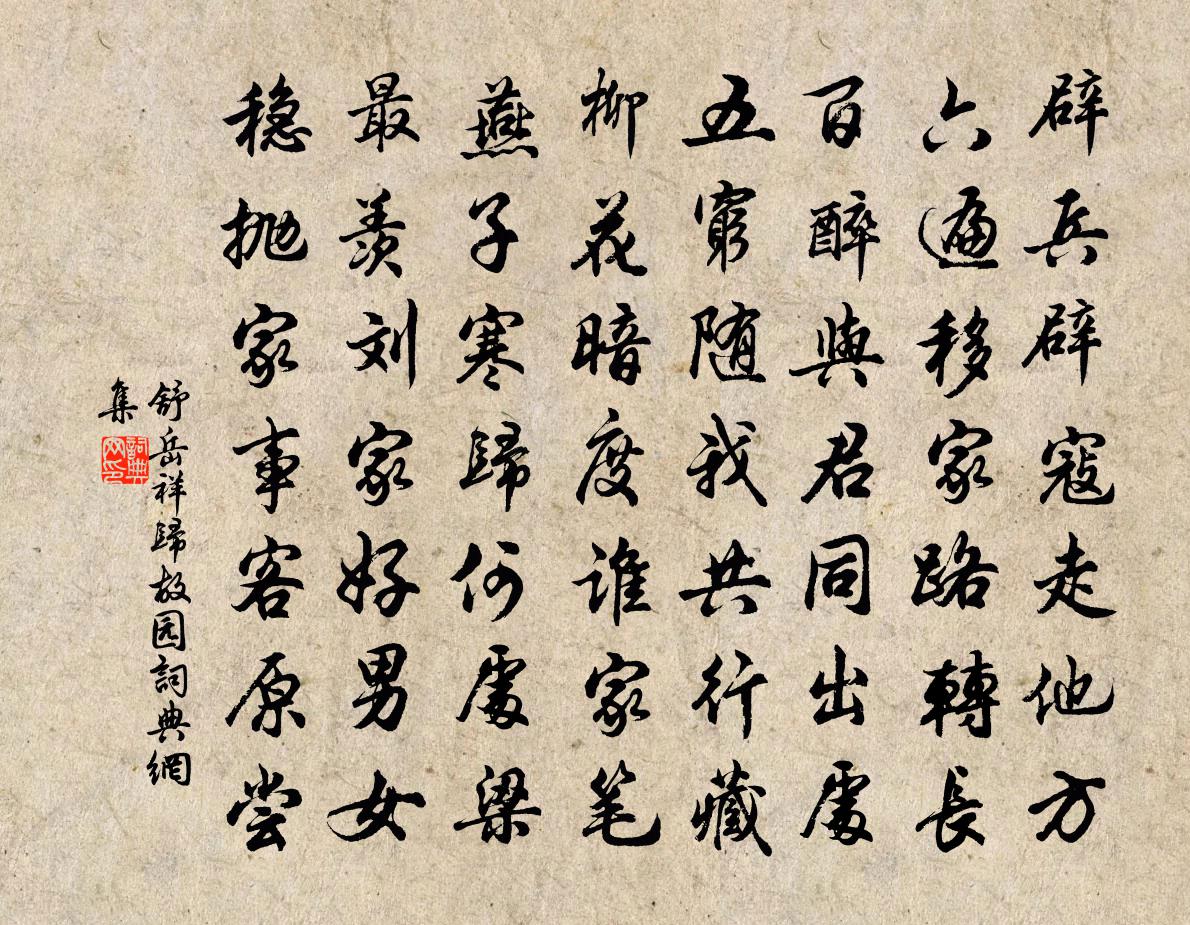 辟兵辟寇走他方
六遍移家路轉長
百醉與君同出處
五窮随我共行藏
柳花暗度谁家笔
燕子寒歸何處梁
最羡刘家好男女
稳抛家事客原尝
舒岳祥歸故园詞典網
集
詞典网印